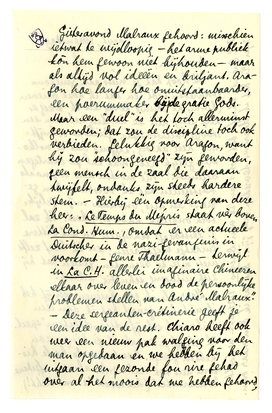 Gisteravond Malraux gehoord: misschien
ietwat te wijdloopig – het arme publiek
kon hem gewoon niet bijhouden – maar
als altijd vol ideeën en briljant. Ara-
gon hoe langer hoe onuitstaanbaarder,
een poerenmaker bij de gratie Gods.
Maar een "duel" is het toch allerminst
geworden; dat zou de discipline toch ook
verbieden. Gelukkig voor Aragon, want
hij zou "schoongeveegd" zijn geworden,
geen mensch in de zaal die daaraan
twijfelt, ondanks zijn steeds hardere
stem. – Hierbij een opmerking van deze
heer: "Le Temps du Mépris staat vèr boven
La Cond. Hum., omdat er een actueele
Duitscher in de nazi-gevangenis in
voorkomt – genre Thaelmann – terwijl
in La C.H. allerlei imaginaire Chineezen
elkaar over leven en dood de persoonlijke
problemen stellen van André Malraux".
– Deze sergeanten-crétinerie geeft je
een idee van de rest. Chiaro heeft ook
weer een nieuw pak walging voor den
man opgedaan en we hebben bij het
uitgaan een gezonde fou rire gehad
over al het moois dat we hebben gehoord.